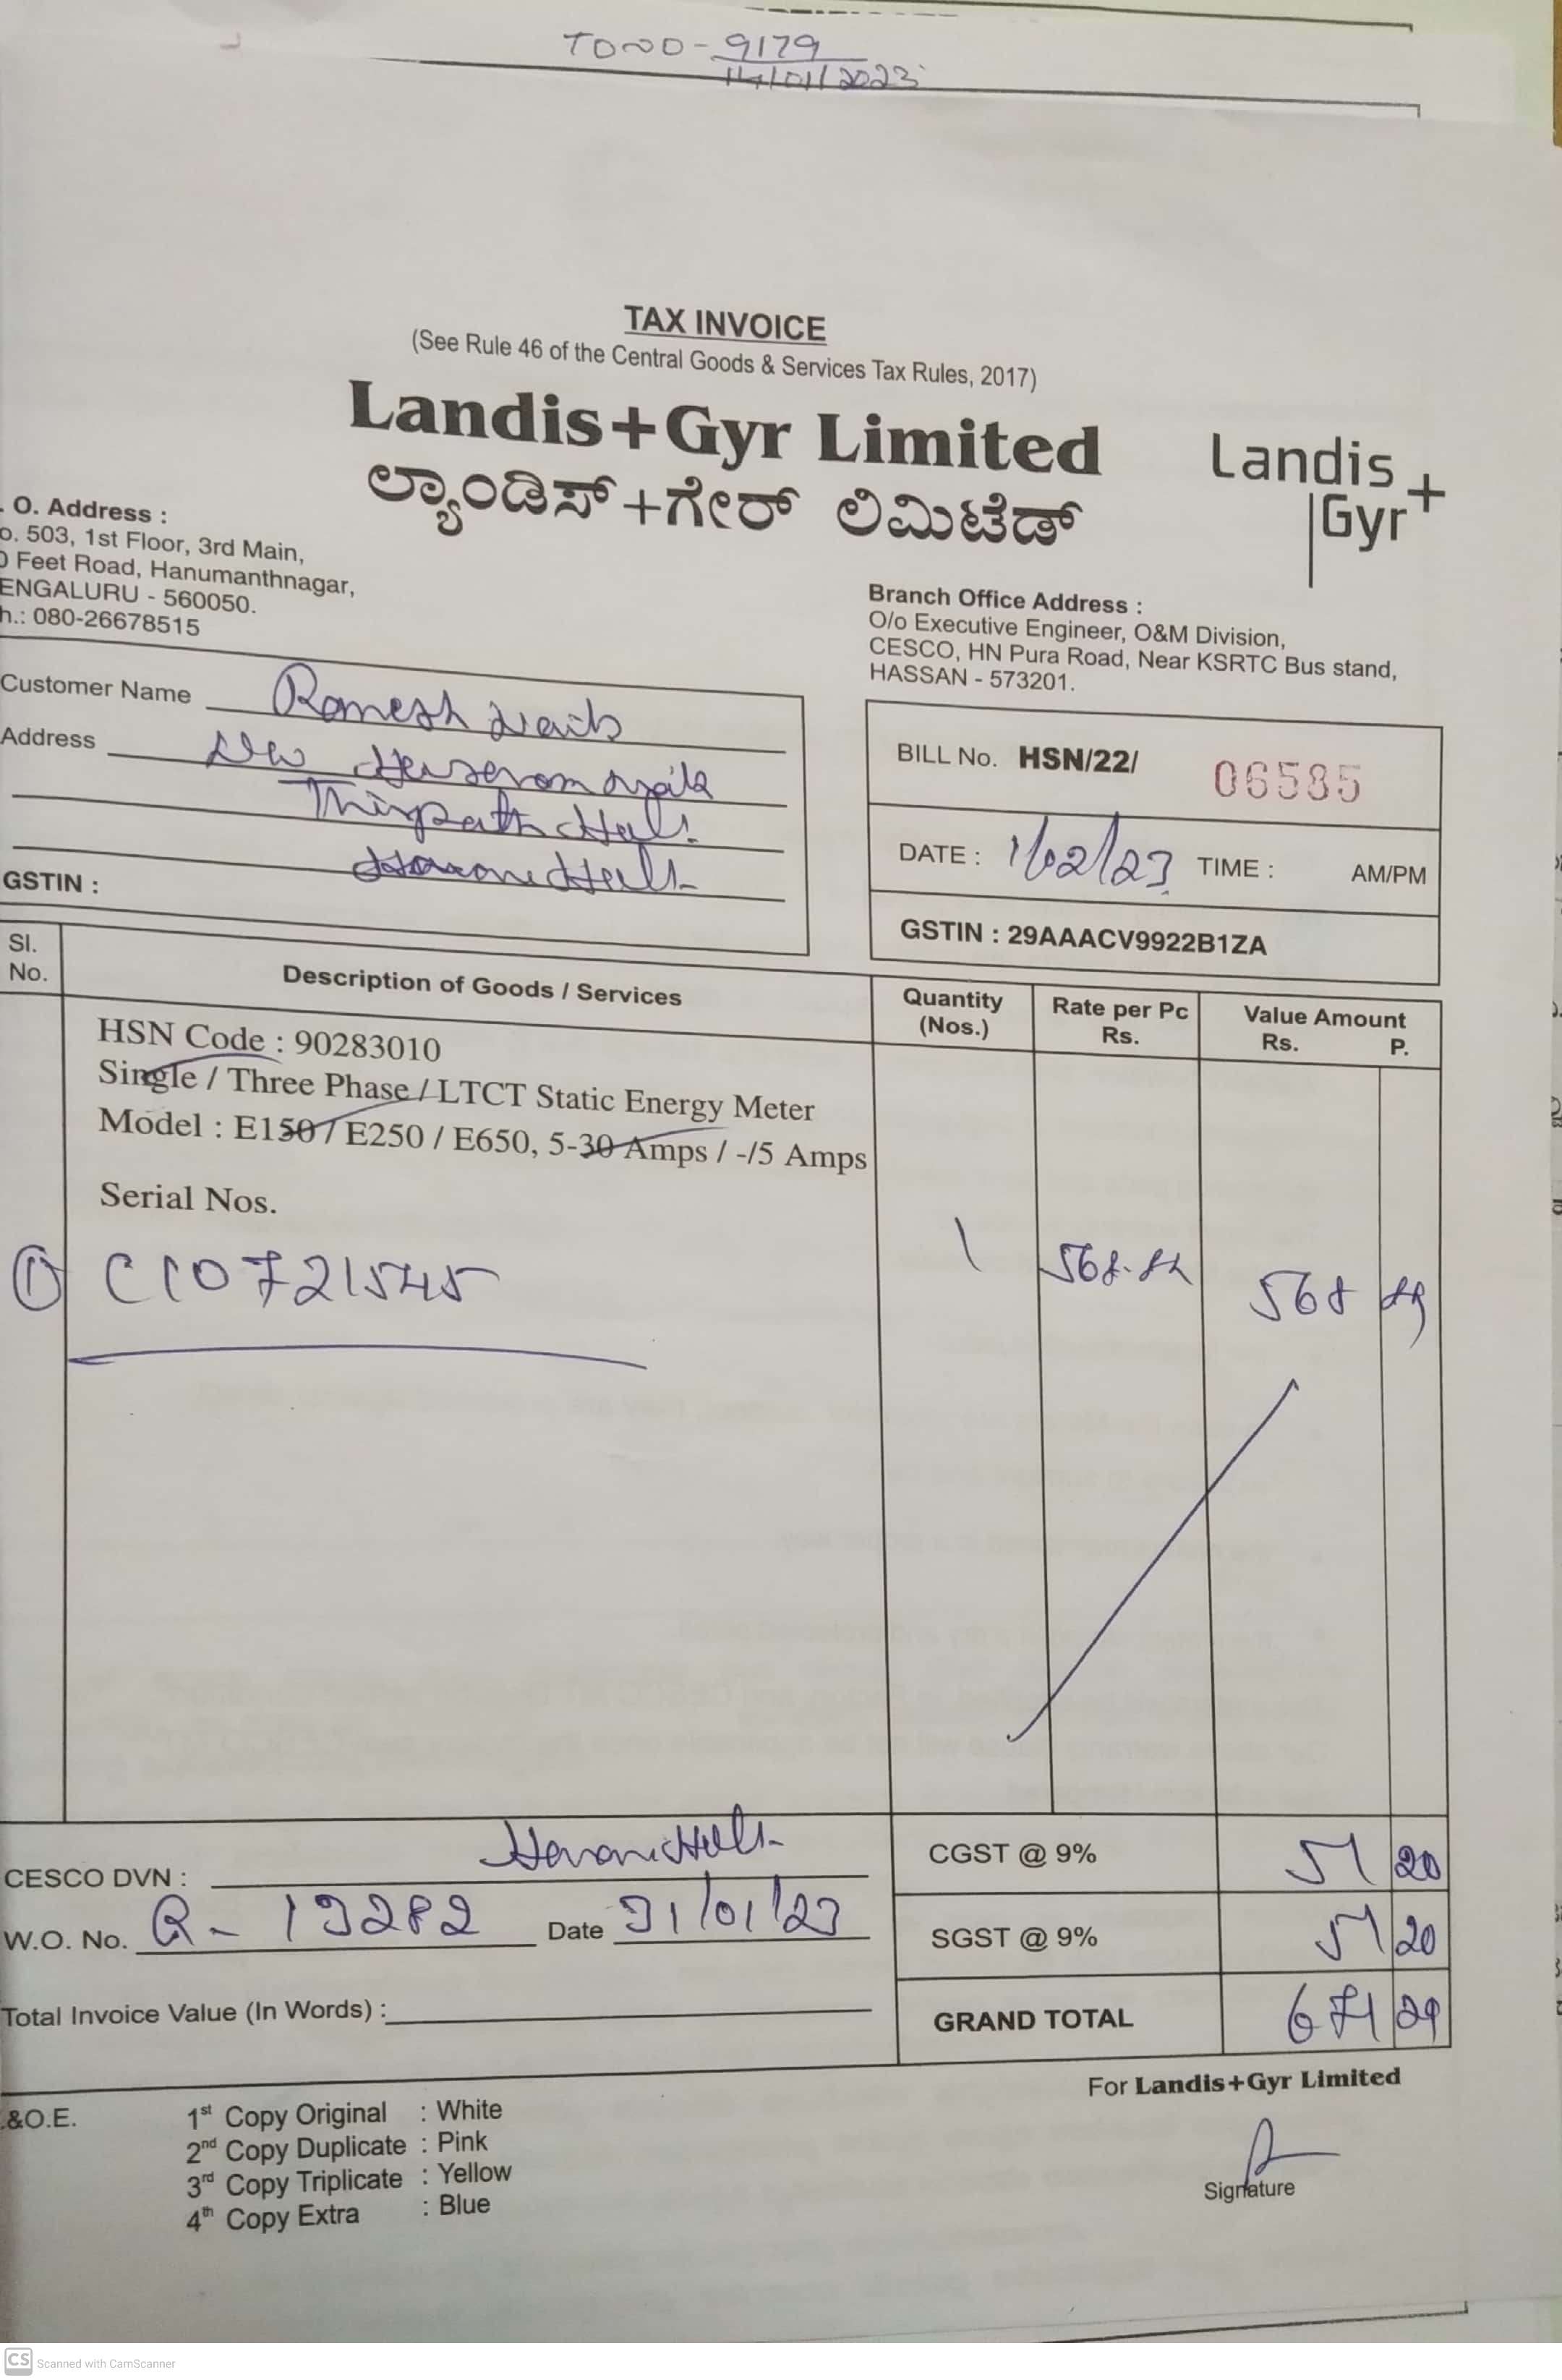 TONO-9179
14/01/2023
TAX INVOICE
(See Rule 46 of the Central Goods & Services Tax Rules, 2017)
Landis+Gyr Limited
ಲ್ಯಾಂಡಿಸ್+ಗೇರ್ ಲಿಮಿಟೆಡ್
Landis+
Gyr
. O. Address :
o. 503, 1st Floor, 3rd Main,
0 Feet Road, Hanumanthnagar,
ENGALURU - 560050.
h.: 080-26678515
Branch Office Address :
O/o Executive Engineer, O&M Division,
CESCO, HN Pura Road, Near KSRTC Bus stand,
HASSAN - 573201.
Customer Name Ramesh Naik
Address
GSTIN :
BILL No. HSN/22/ 06585
DATE : 1/02/23 TIME : AM/PM
GSTIN : 29AAACV9922B1ZA
Sl. No. Description of Goods / Services Quantity (Nos.) Rate per Pc Rs. Value Amount Rs. P.
HSN Code : 90283010
Single / Three Phase / LTCT Static Energy Meter
Model : E150 / E250 / E650, 5-30 Amps / -/5 Amps
Serial Nos.
1 C10721545 1 568.89 568 89
CESCO DVN :
CGST @ 9% 51 20
W.O. No. R- 19282 Date 31/01/23
SGST @ 9% 51 20
Total Invoice Value (In Words) :
GRAND TOTAL 671 29
For Landis+Gyr Limited
.&O.E.
1st Copy Original : White
2nd Copy Duplicate : Pink
3rd Copy Triplicate : Yellow
4th Copy Extra : Blue
Signature
CS Scanned with CamScanner